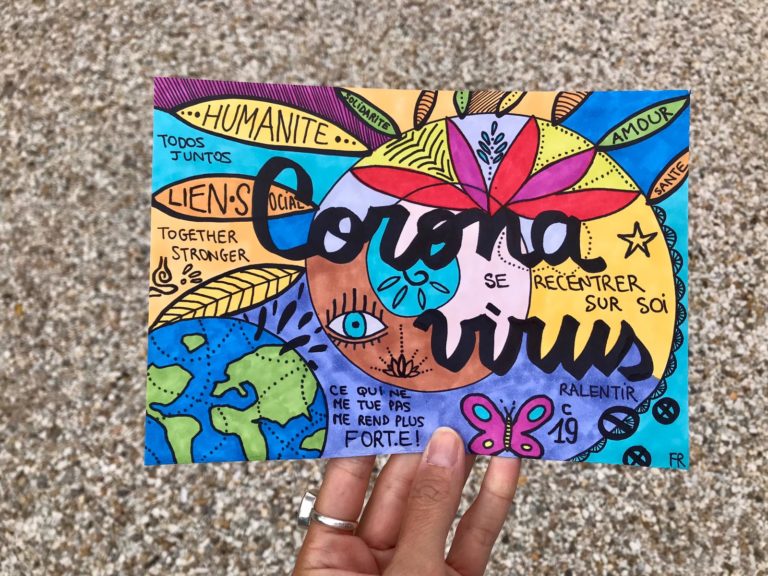 HUMANITE
SOLIDARITE
AMOUR
SANTE
TODOS
JUNTOS
LIEN•SOCIAL
TOGETHER
STRONGER
Corona
virus
SE RECENTRER
SUR SOI
RALENTIR
CE QUI NE
ME TUE PAS
ME REND PLUS
FORT.E!
C
19
FR